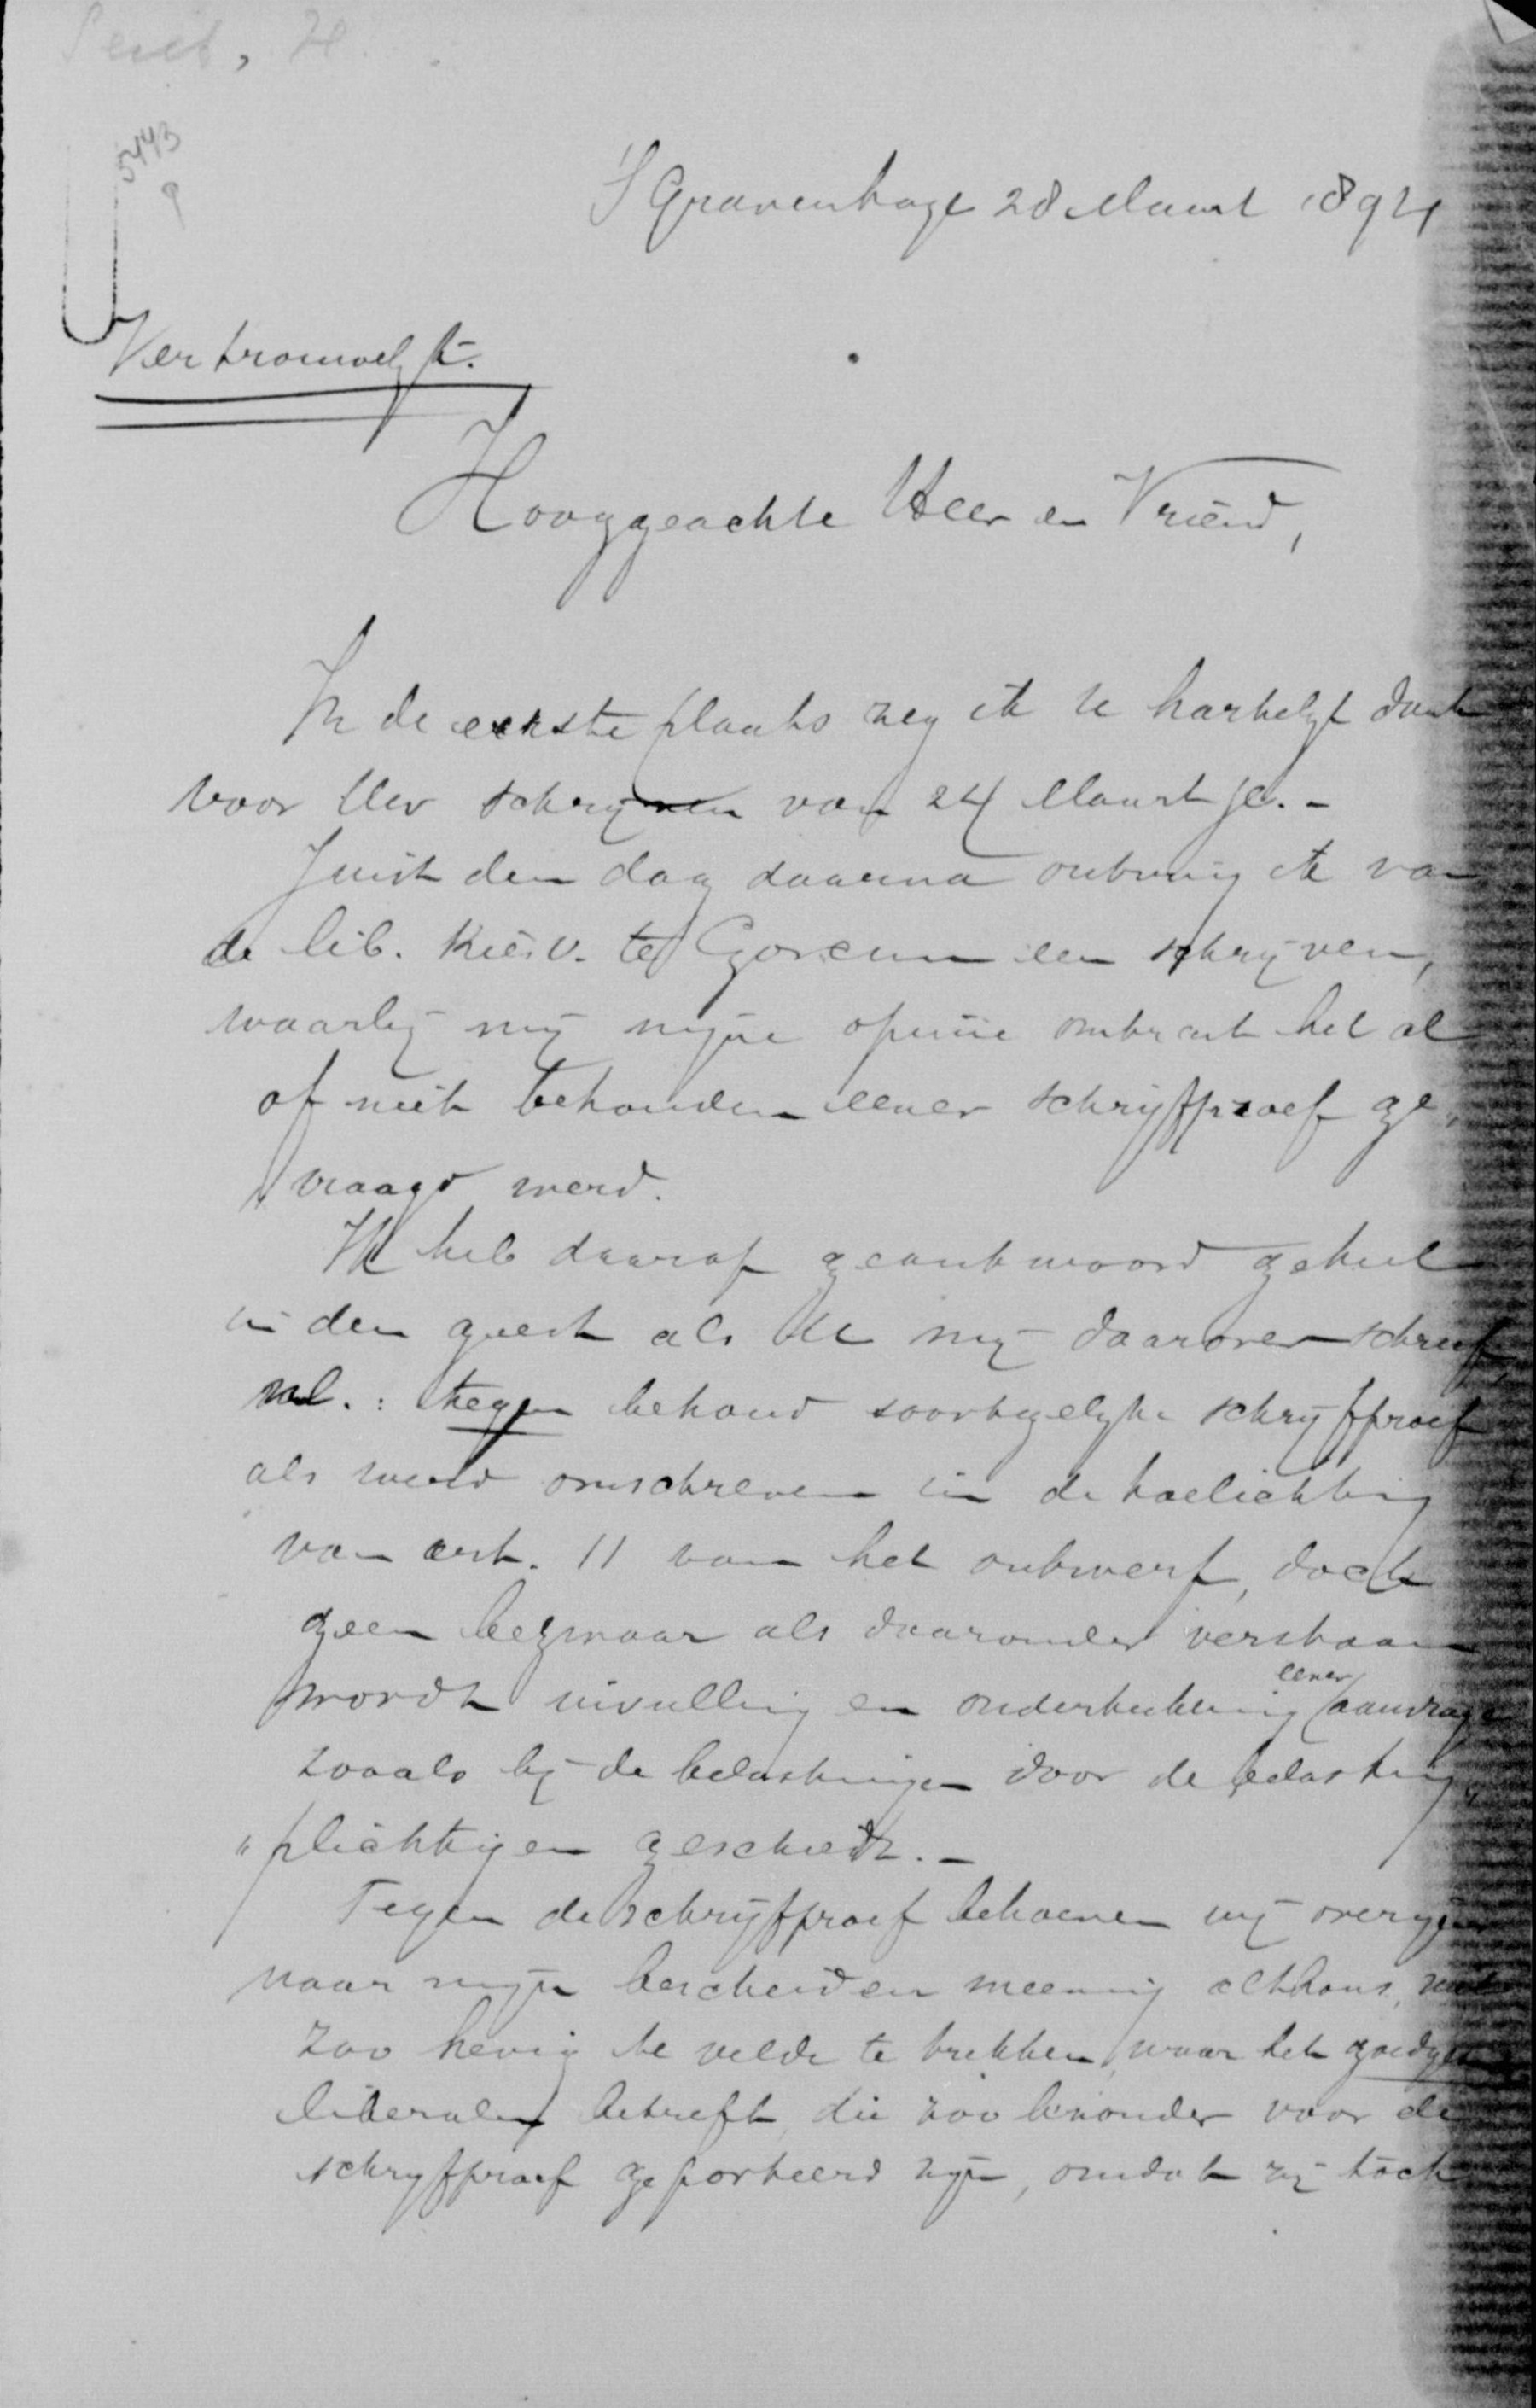 5443
9
'S Gravenhage 28 Maart 1894
Vertrouwelijk.
Hooggeachte Heer en Vriend,
In de eerste plaats zeg ik U hartelijk dank
voor Uw schrijven van 24 Maart jl. -
Juist den dag daarna ontving ik van
de lib. Kiesv. te Gorcum een schrijven,
waarbij mij mijne opinie omtrent het al
of niet behouden eener schrijfproef ge„
vraagd werd.
Ik heb daarop geantwoord geheel
in den geest als U mij daarover schreef,
nl.: tegen behoud soortgelijke schrijfproef
als werd omschreven in de toelichting
van art. 11 van het ontwerp, doch
geen bezwaar als daaronder verstaan
wordt invulling en onderteekening eener aanvrage
zooals bij de belastingen door de belasting„
„plichtigen geschiedt. -
Tegen de schrijfproef behoeven wij overigens
naar mijn bescheiden meening althans, niet
zoo hevig te velde te trekken, waar het
liberalen betreft, die zoo bizonder voor de
schrijfproef geporteerd zijn, omdat zij toch